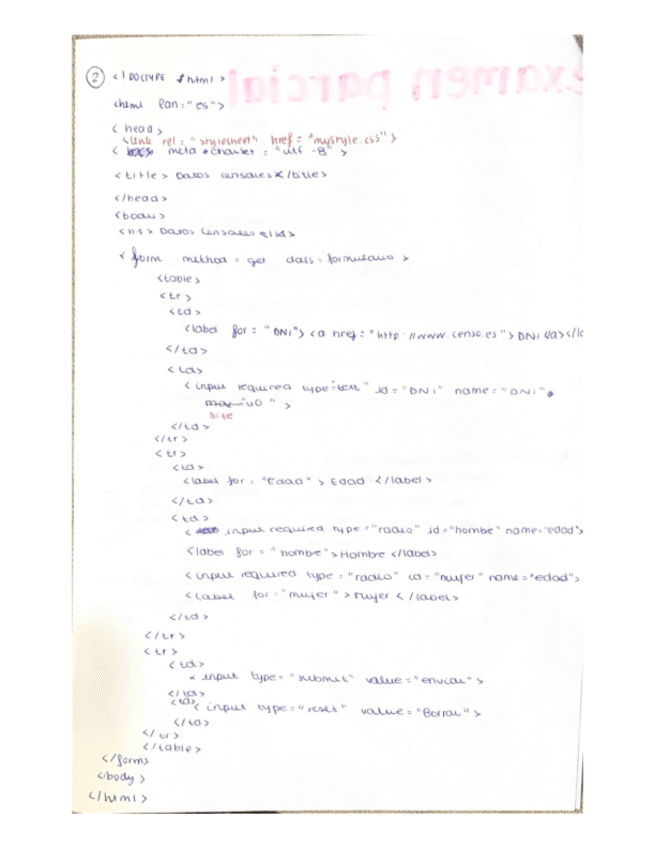 examen parcial
② <! DOCTYPE html>
<html lan:"es">
<head>
<link rel="stylesheet" href="mystyle.css">
< meta charset = "utf-8" >
<title> Datos censales </title>
</head>
<body>
<h1> Datos Censales </h1>
<form method = get class = formulario >
<table>
<tr>
<td>
<label for = "DNI"> <a href = "http://www.censo.es"> DNI </a> </l
</td>
<td>
<input required type="text" id = "DNI" name = "DNI"
"40" >
size
</td>
</tr>
<tr>
<td>
<label for = "Edad" > Edad </label>
</td>
<td>
< input required type = "radio" id="hombe" name="edad">
<label for = "hombe" > Hombre </label>
<input required type = "radio" id = "mujer" name = "edad">
<label for = "mujer" > Mujer </label>
</td>
</tr>
<tr>
<td>
< input type = "submit" value = "enviar" >
</td>
<td>
< input type = "reset" value = "Borrar" >
</td>
</tr>
</table>
</form>
</body>
</html>